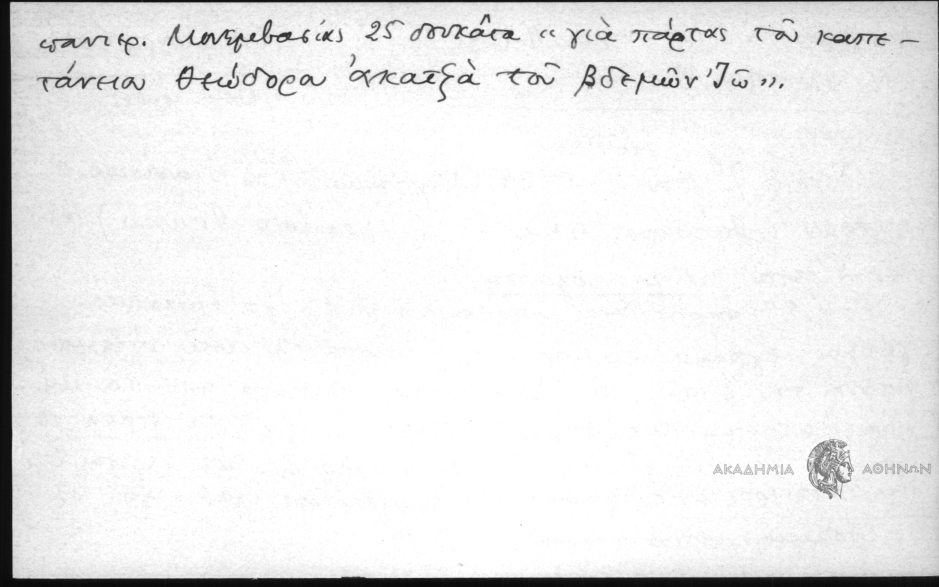 πανιερ. Μονεμβασίας 25 δουκάτα « γιὰ πάρτας τοῦ καπε–
τάνειου Θεώδορα Ἀκατζὰ τοῦ βδεμιῶν Ἰῶ ».
ΑΚΑΔΗΜΙΑ ΑΘΗΝΩΝ